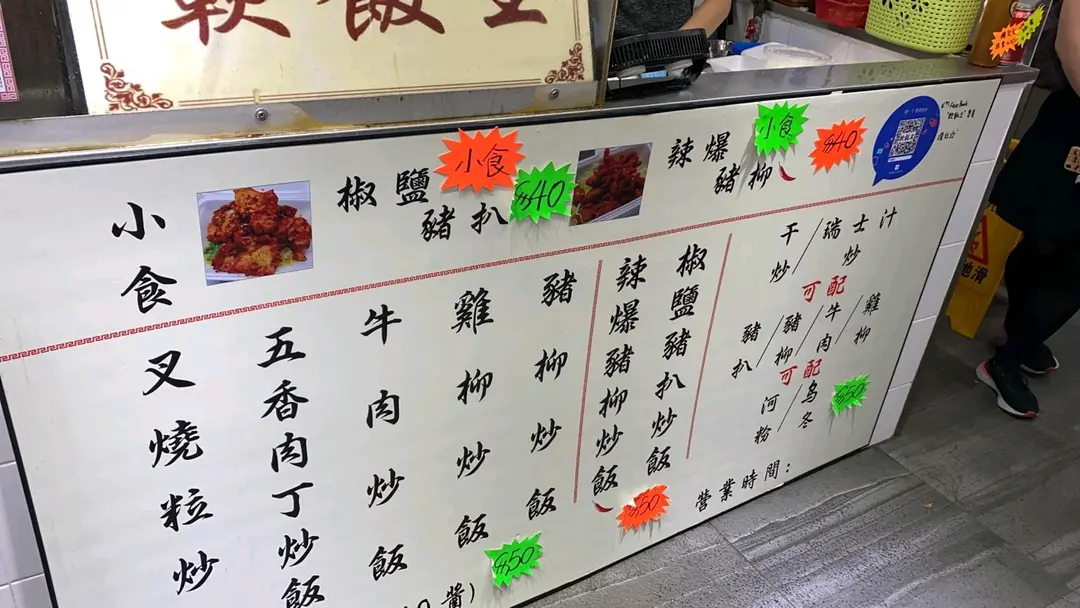 小食
椒鹽豬扒
小食
$40
辣爆豬柳
小食
$40
叉燒粒炒
五香肉丁炒飯
牛肉炒飯
雞柳炒飯
豬柳炒飯
$50
辣爆豬柳炒飯
椒鹽豬扒炒飯
$50
干炒/瑞士汁炒
可配
豬扒/豬柳/牛肉/雞柳
可配
河粉/乌冬
$50
營業時間：
地滑